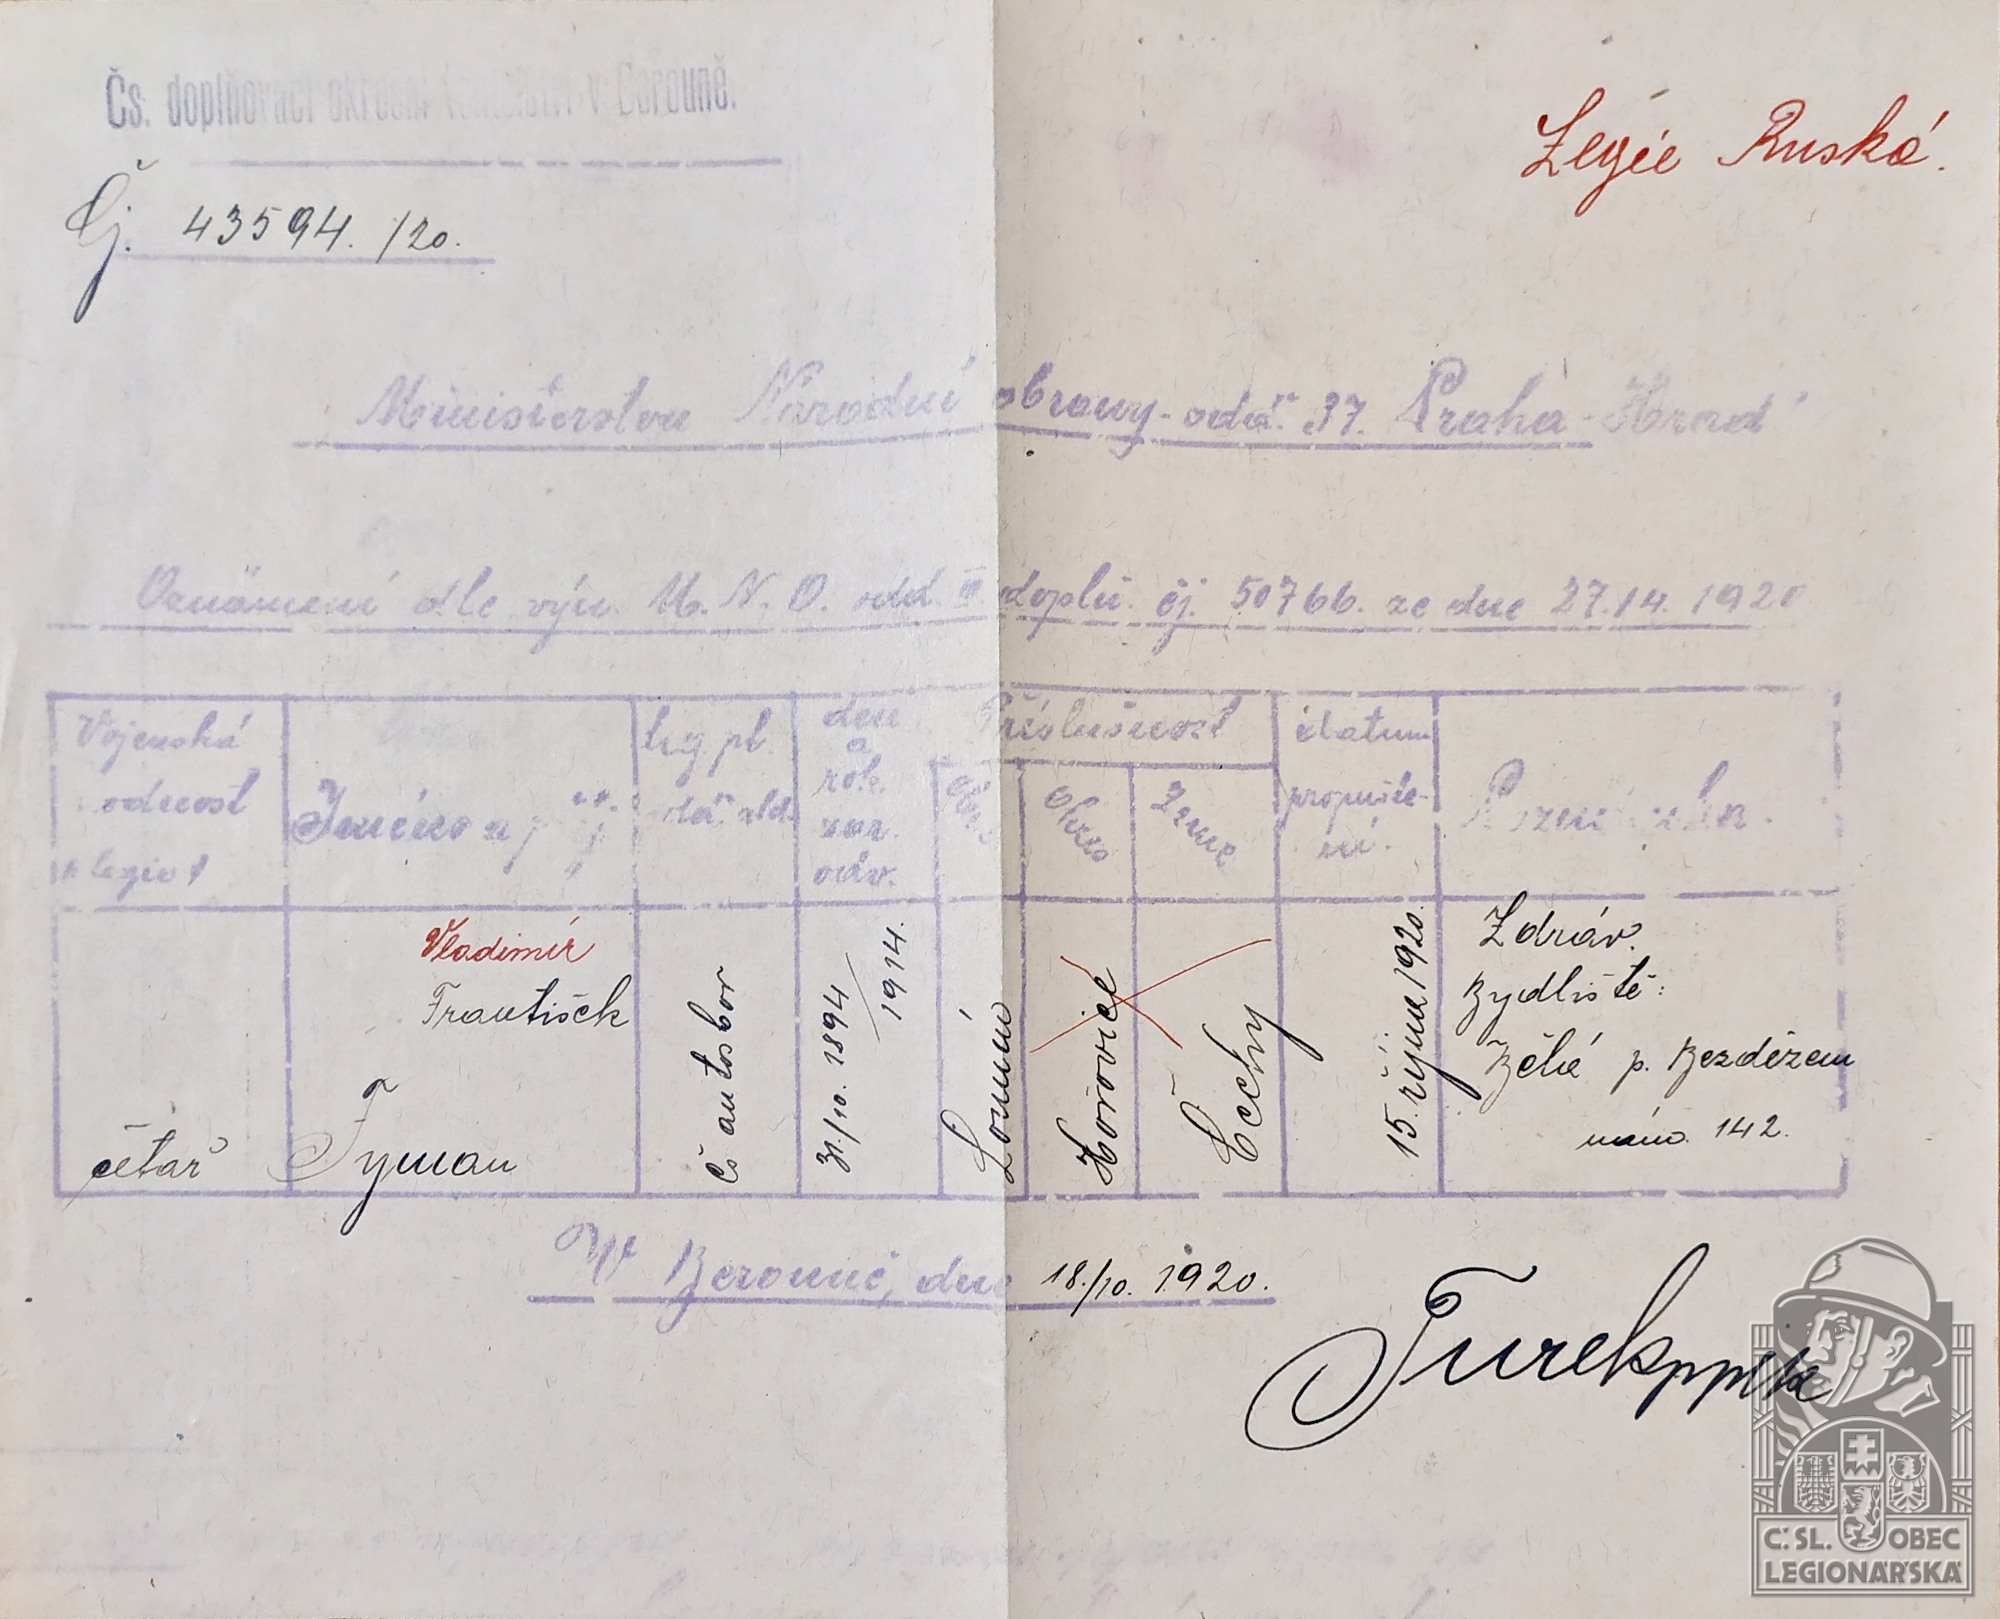 Čs. doplňovací okresní velitelství v Berouně.
Legie Ruská.
Čj. 43594./20.
Ministerstvu Národní obrany - odd. 37. Praha - Hrad
Oznámení dle výn. M. N. O. odd. doplň. čj. 50766. ze dne 27.14. 1920
Vojenská
hodnost
v legii
Jméno a
leg. pl.
den
a
rok
nar.
odv.
Příslušnost
Obec
Okres
Země
datum
propuště-
ní.
Poznámka.
četař
Vladimír
František
Fyman
Čs autosbor
31./10. 1894/
1914.
Lounín
Hořovice
Čechy
15. října 1920.
Zdráv.
Bydliště:
Bělá p. Bezdězem
nám. 142.
V Berouně, dne 18./10. 1920.
Turek
Č.SL. OBEC
LEGIONÁŘSKÁ